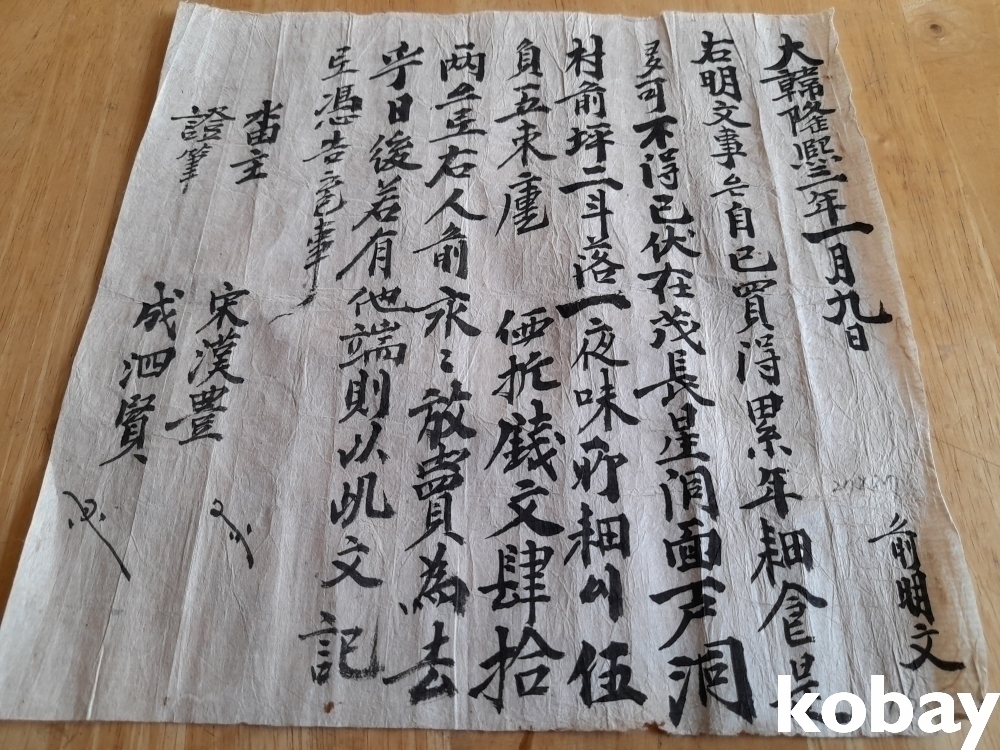 大韓隆熙三年一月九日 前明文
右明文事段自己買得累年耕食是
多可不得已伏在茂長星洞面戶洞
村前坪二斗落一夜味所耕卜伍
負五束㢱 価折錢文肆拾
兩為右人前永〻放賣為去
乎日後若有他端則以此文記
憑告官事
畓主 宋漢豊
證筆 成泗賢
kobay